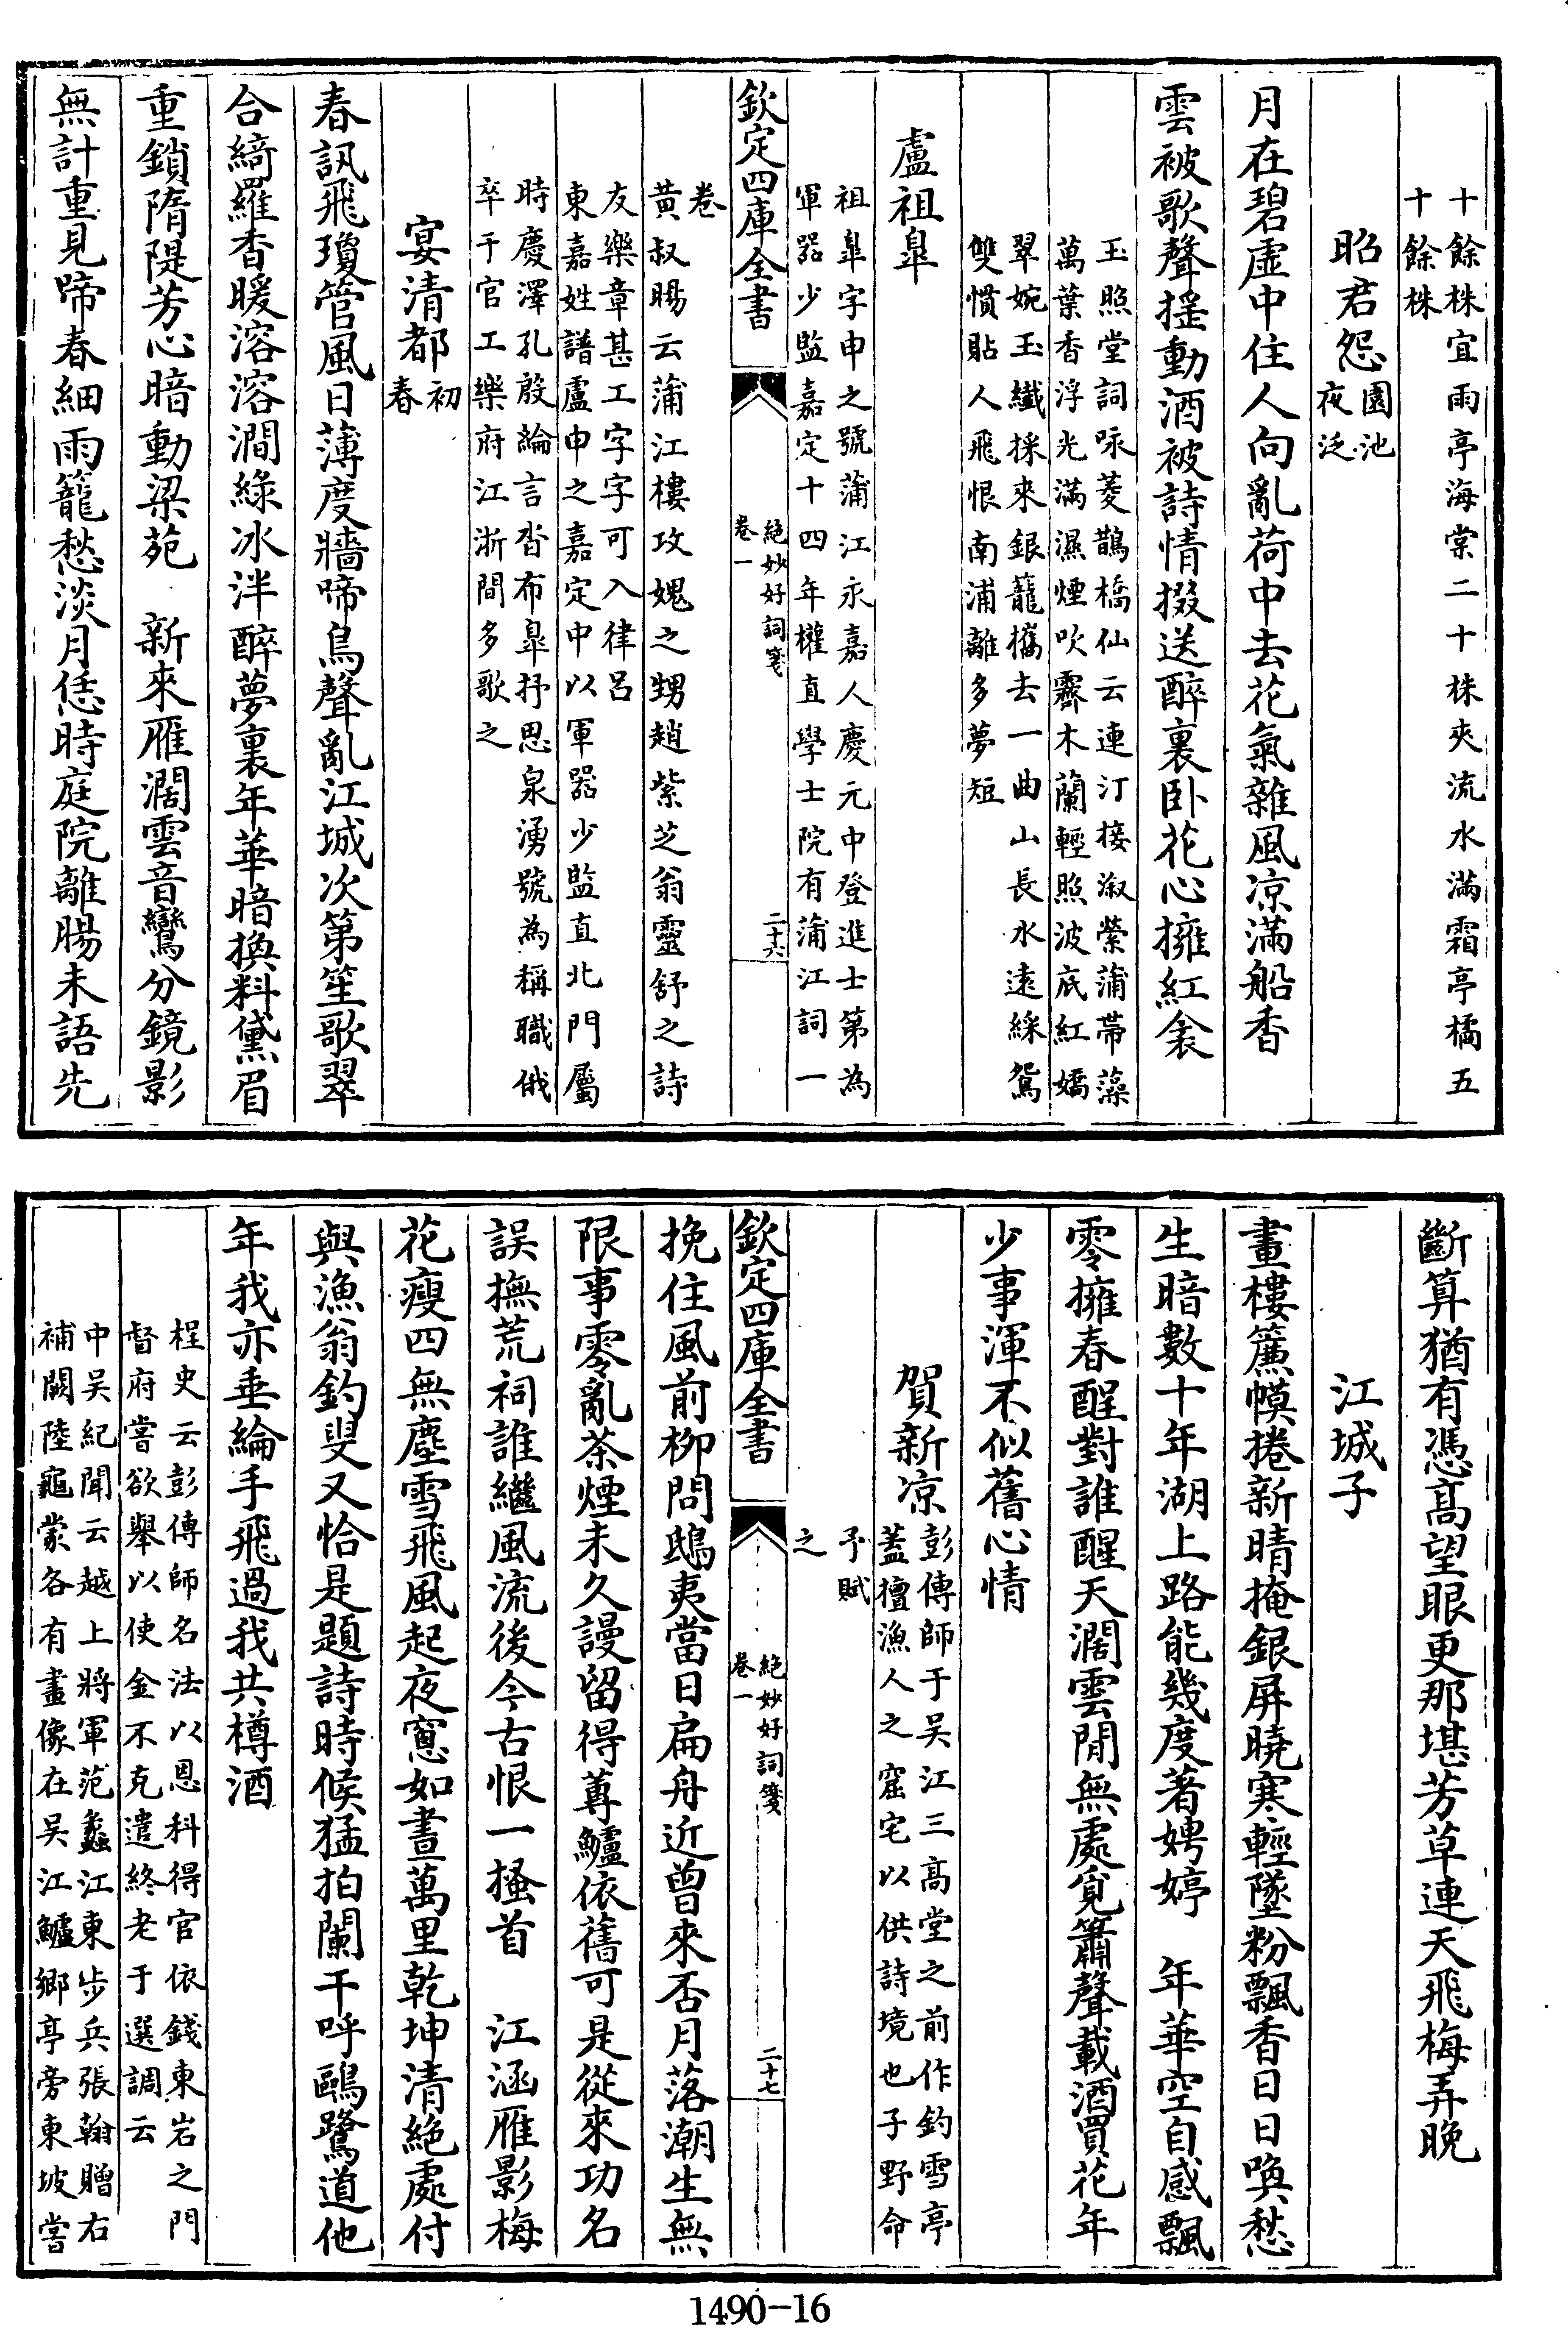 十餘株宜雨亭海棠二十株夾流水滿霜亭橘五
十餘株
昭君怨園池夜泛
月在碧虛中住人向亂荷中去花氣雜風凉滿船香
雲被歌聲摇動酒被詩情掇送醉裏卧花心擁紅衾
玉照堂詞咏菱鵲橋仙云連汀接溆縈蒲帶藻
萬葉香浮光滿濕煙吹霽木蘭輕照波底紅嬌
翠婉玉纎採來銀籠攜去一曲山長水遠綵鴛
雙慣貼人飛恨南浦離多夢短
盧祖臯
祖臯字申之號蒲江永嘉人慶元中登進士第為
軍器少監嘉定十四年權直學士院有蒲江詞一
欽定四庫全書
絶妙好詞箋
卷一
二十六
卷
黄叔暘云蒲江樓攻媿之甥趙紫芝翁靈舒之詩
友樂章甚工字字可入律呂
東嘉姓譜盧申之嘉定中以軍器少監直北門屬
時慶澤孔殷綸言沓布臯抒思泉湧號為稱職俄
卒于官工樂府江浙間多歌之
宴清都初春
春訊飛瓊管風日薄度牆啼鳥聲亂江城次第笙歌翠
合綺羅香暖溶溶澗綠冰泮醉夢裏年華暗換料黛眉
重鎖隋隄芳心暗動梁苑　新來雁濶雲音鸞分鏡影
無計重見啼春細雨籠愁淡月恁時庭院離腸未語先
斷算猶有憑高望眼更那堪芳草連天飛梅弄晚
江城子
畫樓簾幙捲新晴掩銀屏曉寒輕墜粉飄香日日喚愁
生暗數十年湖上路能幾度著娉婷　年華空自感飄
零擁春酲對誰醒天濶雲閒無處覓簫聲載酒買花年
少事渾不似舊心情
賀新凉
彭傳師于吴江三高堂之前作釣雪亭
蓋擅漁人之窟宅以供詩境也子野命
予賦
之
欽定四庫全書
絶妙好詞箋
卷一
二十七
挽住風前柳問鴟夷當日扁舟近曾來否月落潮生無
限事零亂茶煙未久謾留得蓴鱸依舊可是從來功名
誤撫荒祠誰繼風流後今古恨一搔首　江涵雁影梅
花瘦四無塵雪飛風起夜窻如晝萬里乾坤清絶處付
與漁翁釣叟又恰是題詩時候猛拍闌干呼鷗鷺道他
年我亦垂綸手飛過我共樽酒
桯史云彭傳師名法以恩科得官依錢東岩之門
督府嘗欲舉以使金不克遣終老于選調云
中吴紀聞云越上將軍范蠡江東步兵張翰贈右
補闕陸龜蒙各有畫像在吴江鱸鄉亭旁東坡嘗
1490-16